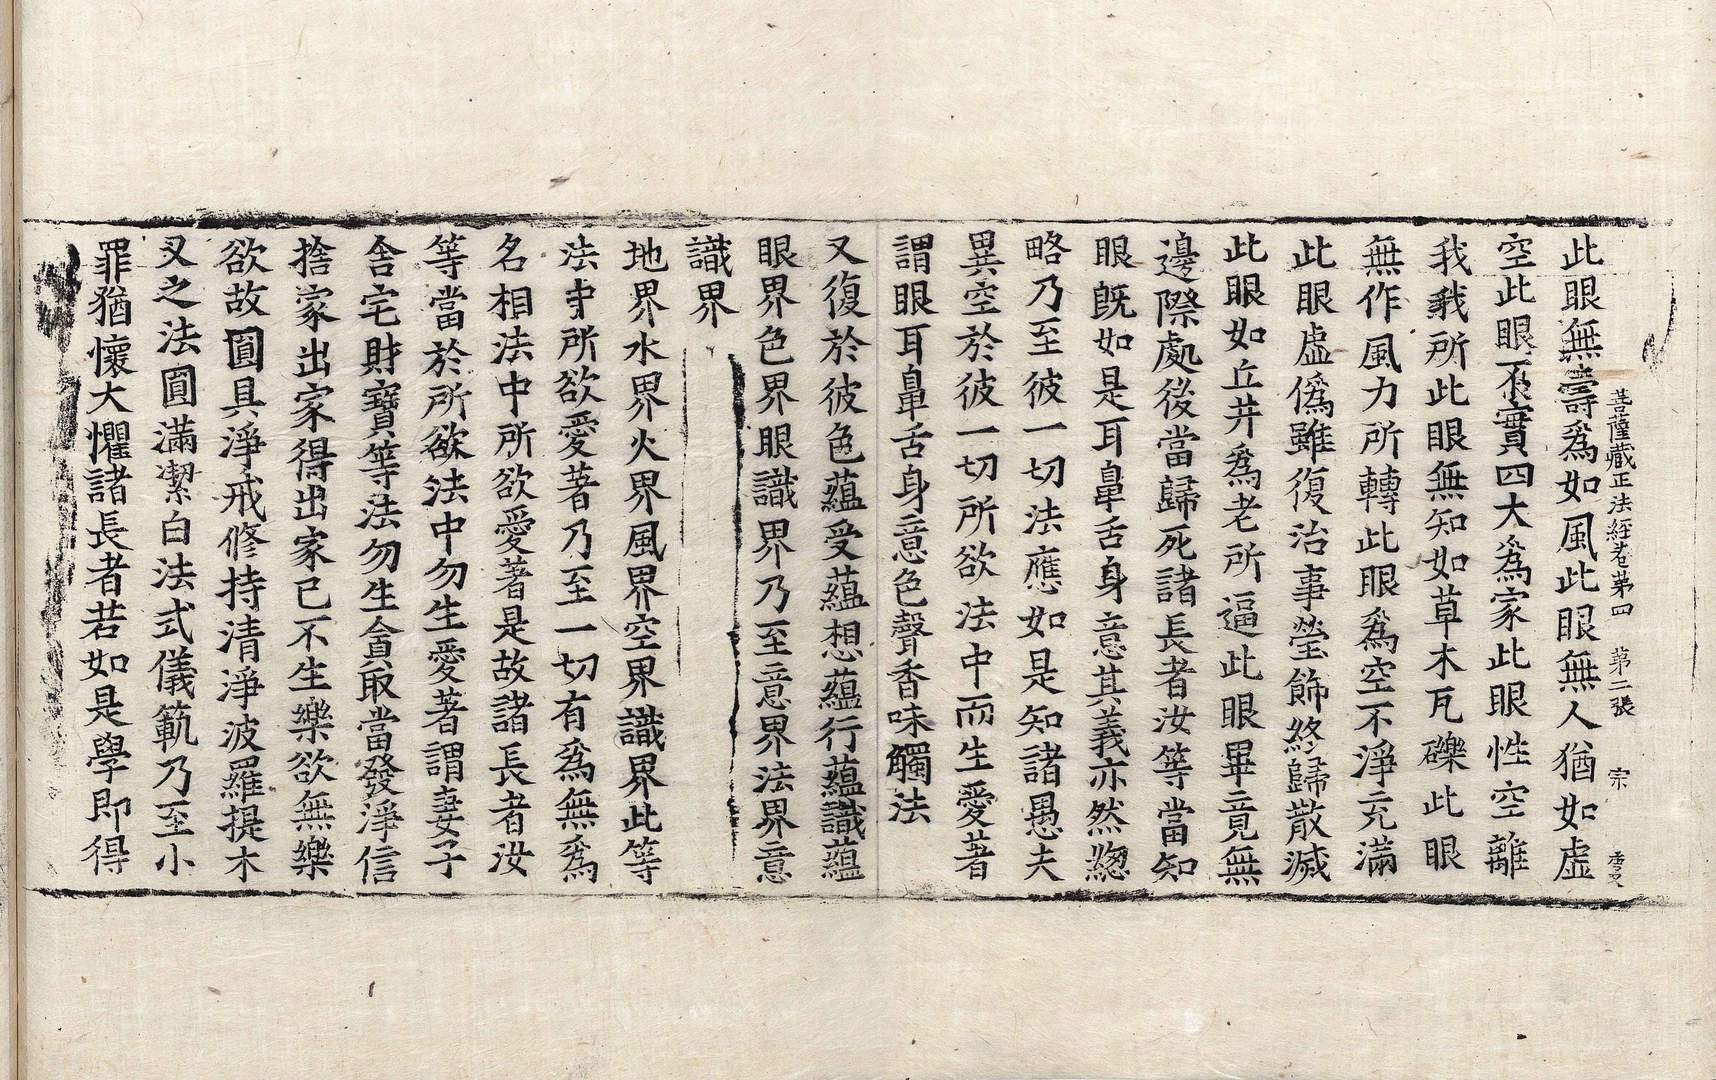 菩薩藏正法經卷苐四 苐二張 宗
此眼無壽爲如風此眼無人猶如虛
空此眼不實四大爲家此眼性空離
我我所此眼無知如草木瓦礫此眼
無作風力所轉此眼爲空不淨充滿
此眼虛僞雖復治事瑩飾終歸散滅
此眼如丘井爲老所逼此眼畢竟無
邊際處後當歸死諸長者汝等當知
眼旣如是耳鼻舌身意其義亦然
略乃至彼一切法應如是知諸愚夫
異空於彼一切所欲法中而生愛著
謂眼耳鼻舌身意色聲香味觸法
又復於彼色蘊受蘊想蘊行蘊識蘊
眼界色界眼識界乃至意界法界意
識界
地界水界火界風界空界識界此等
法中所欲愛著乃至一切有爲無爲
名相法中所欲愛著是故諸長者汝
等當於所欲法中勿生愛著謂妻子
舍宅財寶等法勿生貪取當發淨信
捨家出家得出家已不生樂欲無樂
欲故圓具淨戒修持清淨波羅提木
叉之法圓滿潔白法式儀範乃至小
罪猶懷大懼諸長者若如是學即得